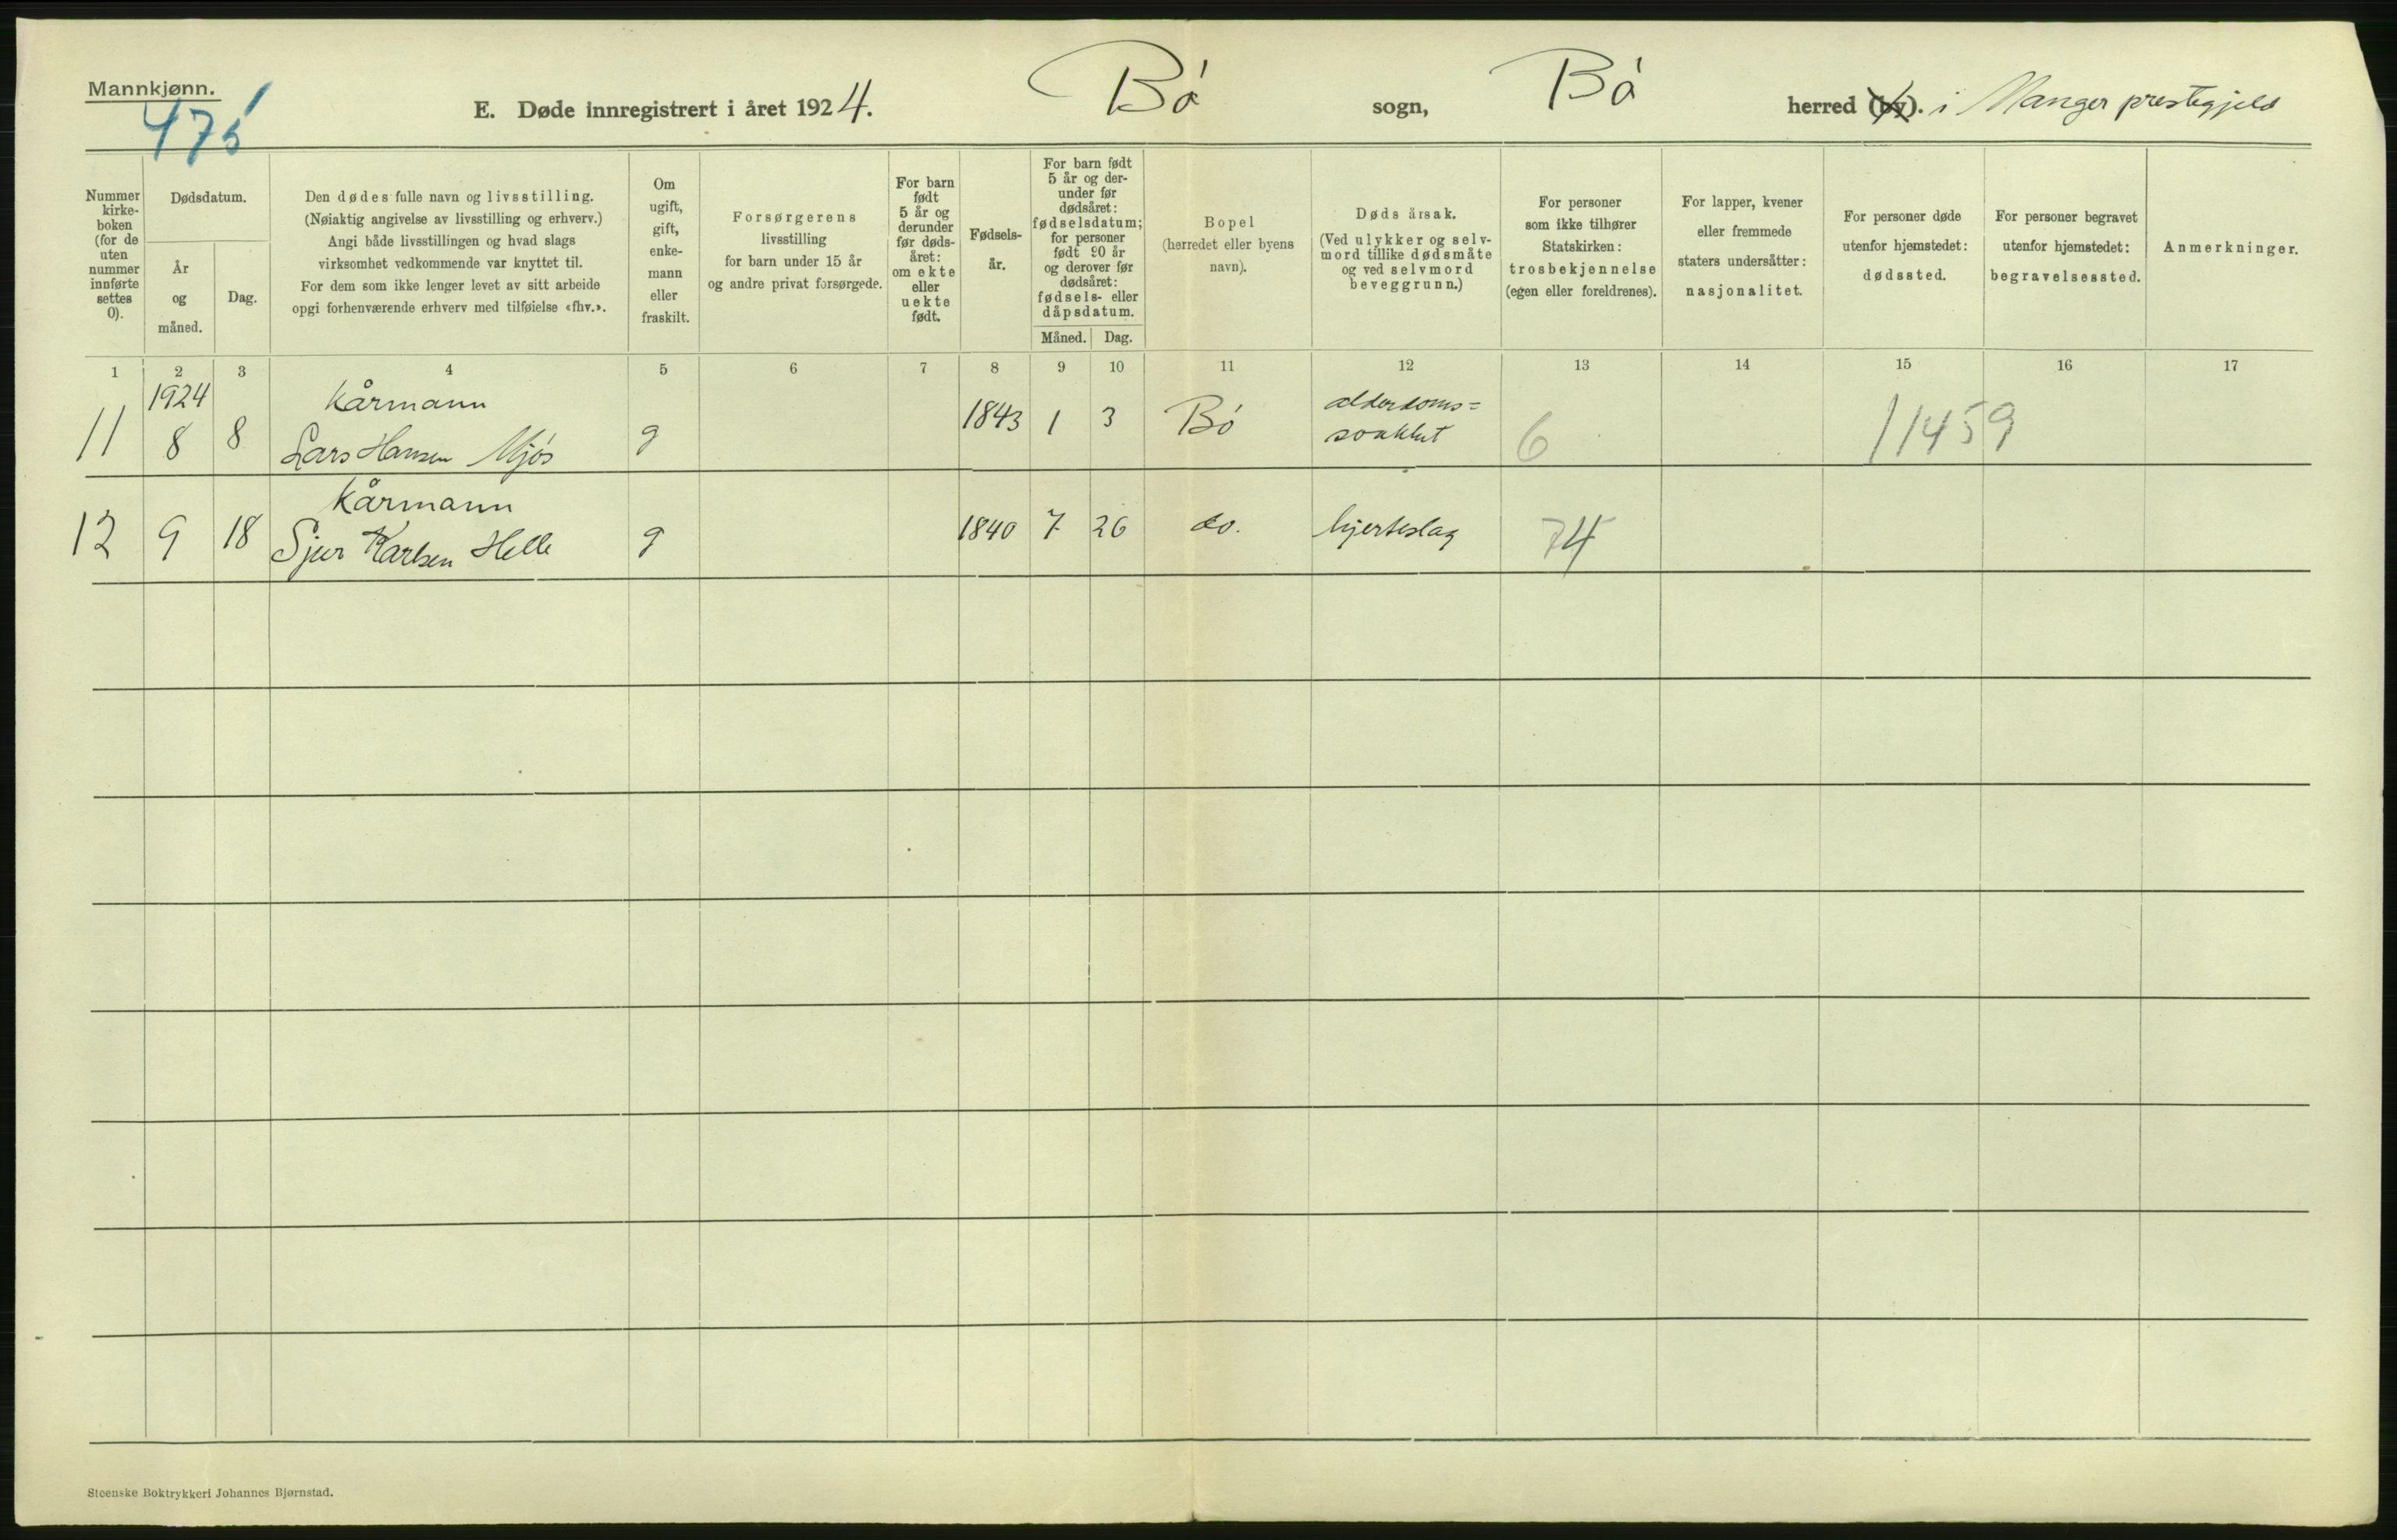 Mannkjønn.
475
E. Døde innregistrert i året 1924. Bó sogn, Bó herred (by). i Manger prestegjeld
Nummer
kirke-
boken
(for de
uten
nummer
innførte
settes
0).
Dødsdatum.
År
og
måned.
Dag.
Den dødes fulle navn og livsstilling.
(Nøiaktig angivelse av livsstilling og erhverv.)
Angi både livsstillingen og hvad slags
virksomhet vedkommende var knyttet til.
For dem som ikke lenger levet av sitt arbeide
opgi forhenværende erhverv med tilføielse «fhv.».
Om
ugift,
gift,
enke-
mann
eller
fraskilt.
Forsørgerens
livsstilling
for barn under 15 år
og andre privat forsørgede.
For barn
født
5 år og
derunder
før døds-
året:
om ekte
eller
uekte
født.
Fødsels-
år.
For barn født
5 år og der-
under før
dødsåret:
fødselsdatum;
for personer
født 90 år
og derover før
dødsåret:
fødsels- eller
dåpsdatum.
Måned. Dag.
Bopel
(herredet eller byens
navn).
Dødsårsak.
(Ved ulykker og selv-
mord tillike dødsmåte
og ved selvmord
beveggrunn.)
For personer
som ikke tilhører
Statskirken:
trosbekjennelse
(egen eller foreldrenes).
For lapper, kvener
eller fremmede
staters undersåtter:
nasjonalitet.
For personer døde
utenfor hjemstedet:
dødssted.
For personer begravet
utenfor hjemstedet:
begravelsessted.
Anmerkninger.
1 2 3 4 5 6 7 8 9 10 11 12 13 14 15 16 17
1924 Kårmann alderdoms=
11 8 8 Lars Hansen Mjós g 1843 1 3 Bó svakhet 6 11459
Kårmann
12 9 18 Sjur Karlsen Helle g 1840 7 26 do. hjerteslag 74
Steenske Boktrykkeri Johannes Bjørnstad.